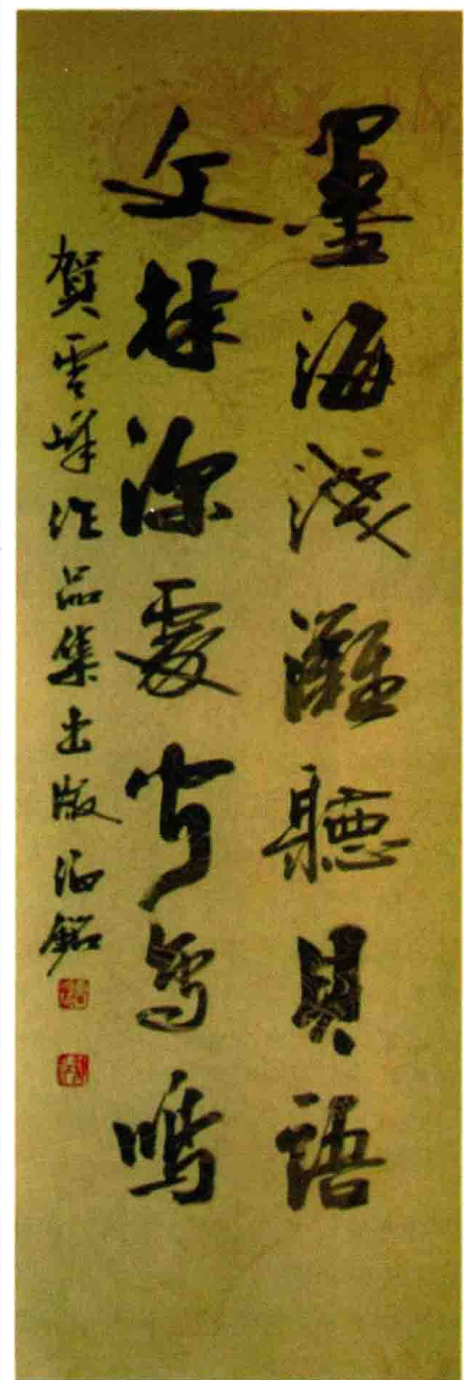 墨海淺灘聽貝語
文林深處聞鳥鳴
賀雲峰作品集出版海銘